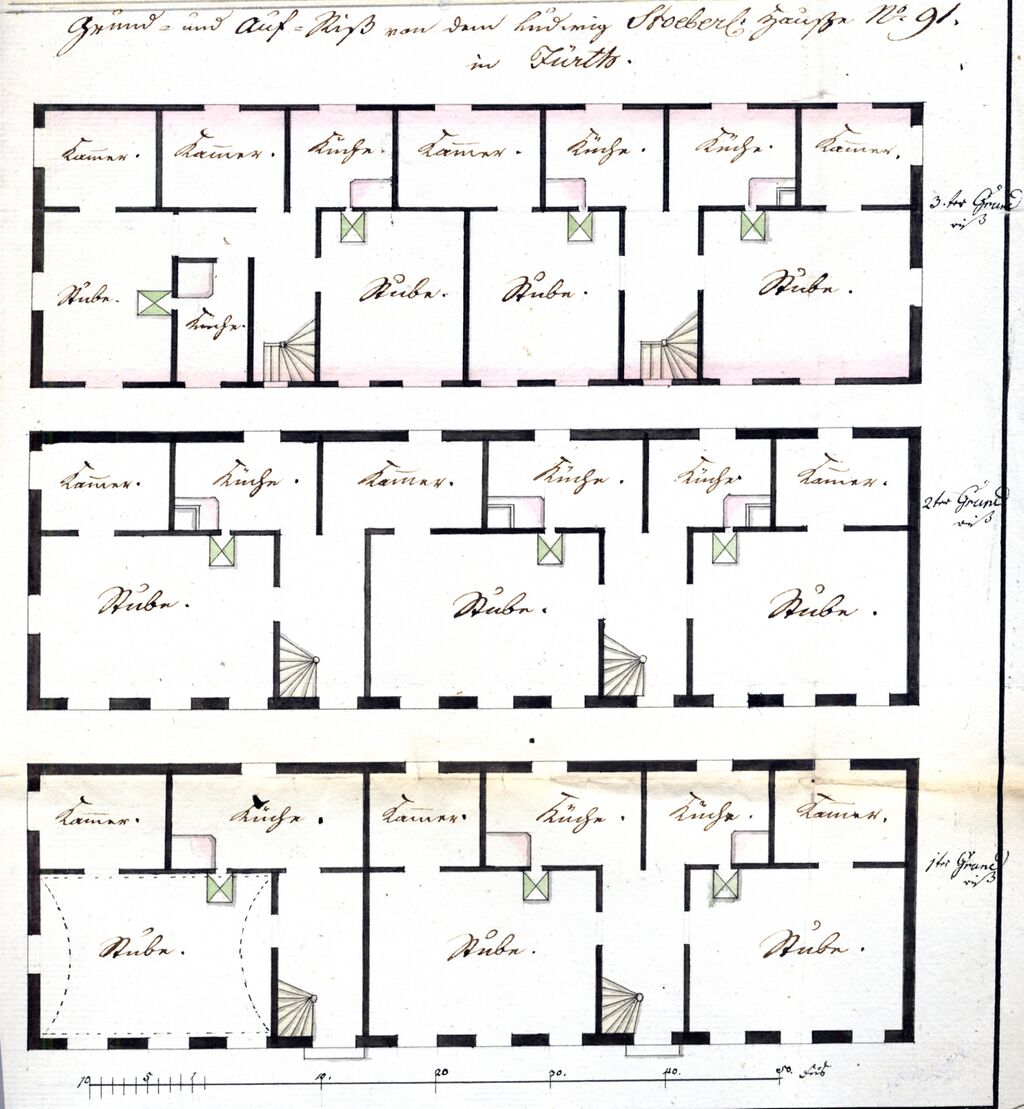 Grund- und Auf-Riß von dem Ludwig Stoeberl: Hauße No 91.
in Fürth.
Kam̅er. Kam̅er. Küche. Kam̅er. Küche. Küche. Kam̅er.
3.ter Grund
riß
Stube. Küche. Stube. Stube. Stube.
Kam̅er. Küche. Kam̅er. Küche. Küche Kam̅er.
2ter Grund
riß
Stube. Stube. Stube.
Kam̅er. Küche. Kam̅er. Küche. Küche. Kam̅er.
1ter Grund
riß
Stube. Stube. Stube.
10 5 1 10. 20 30. 40. 50. Fus